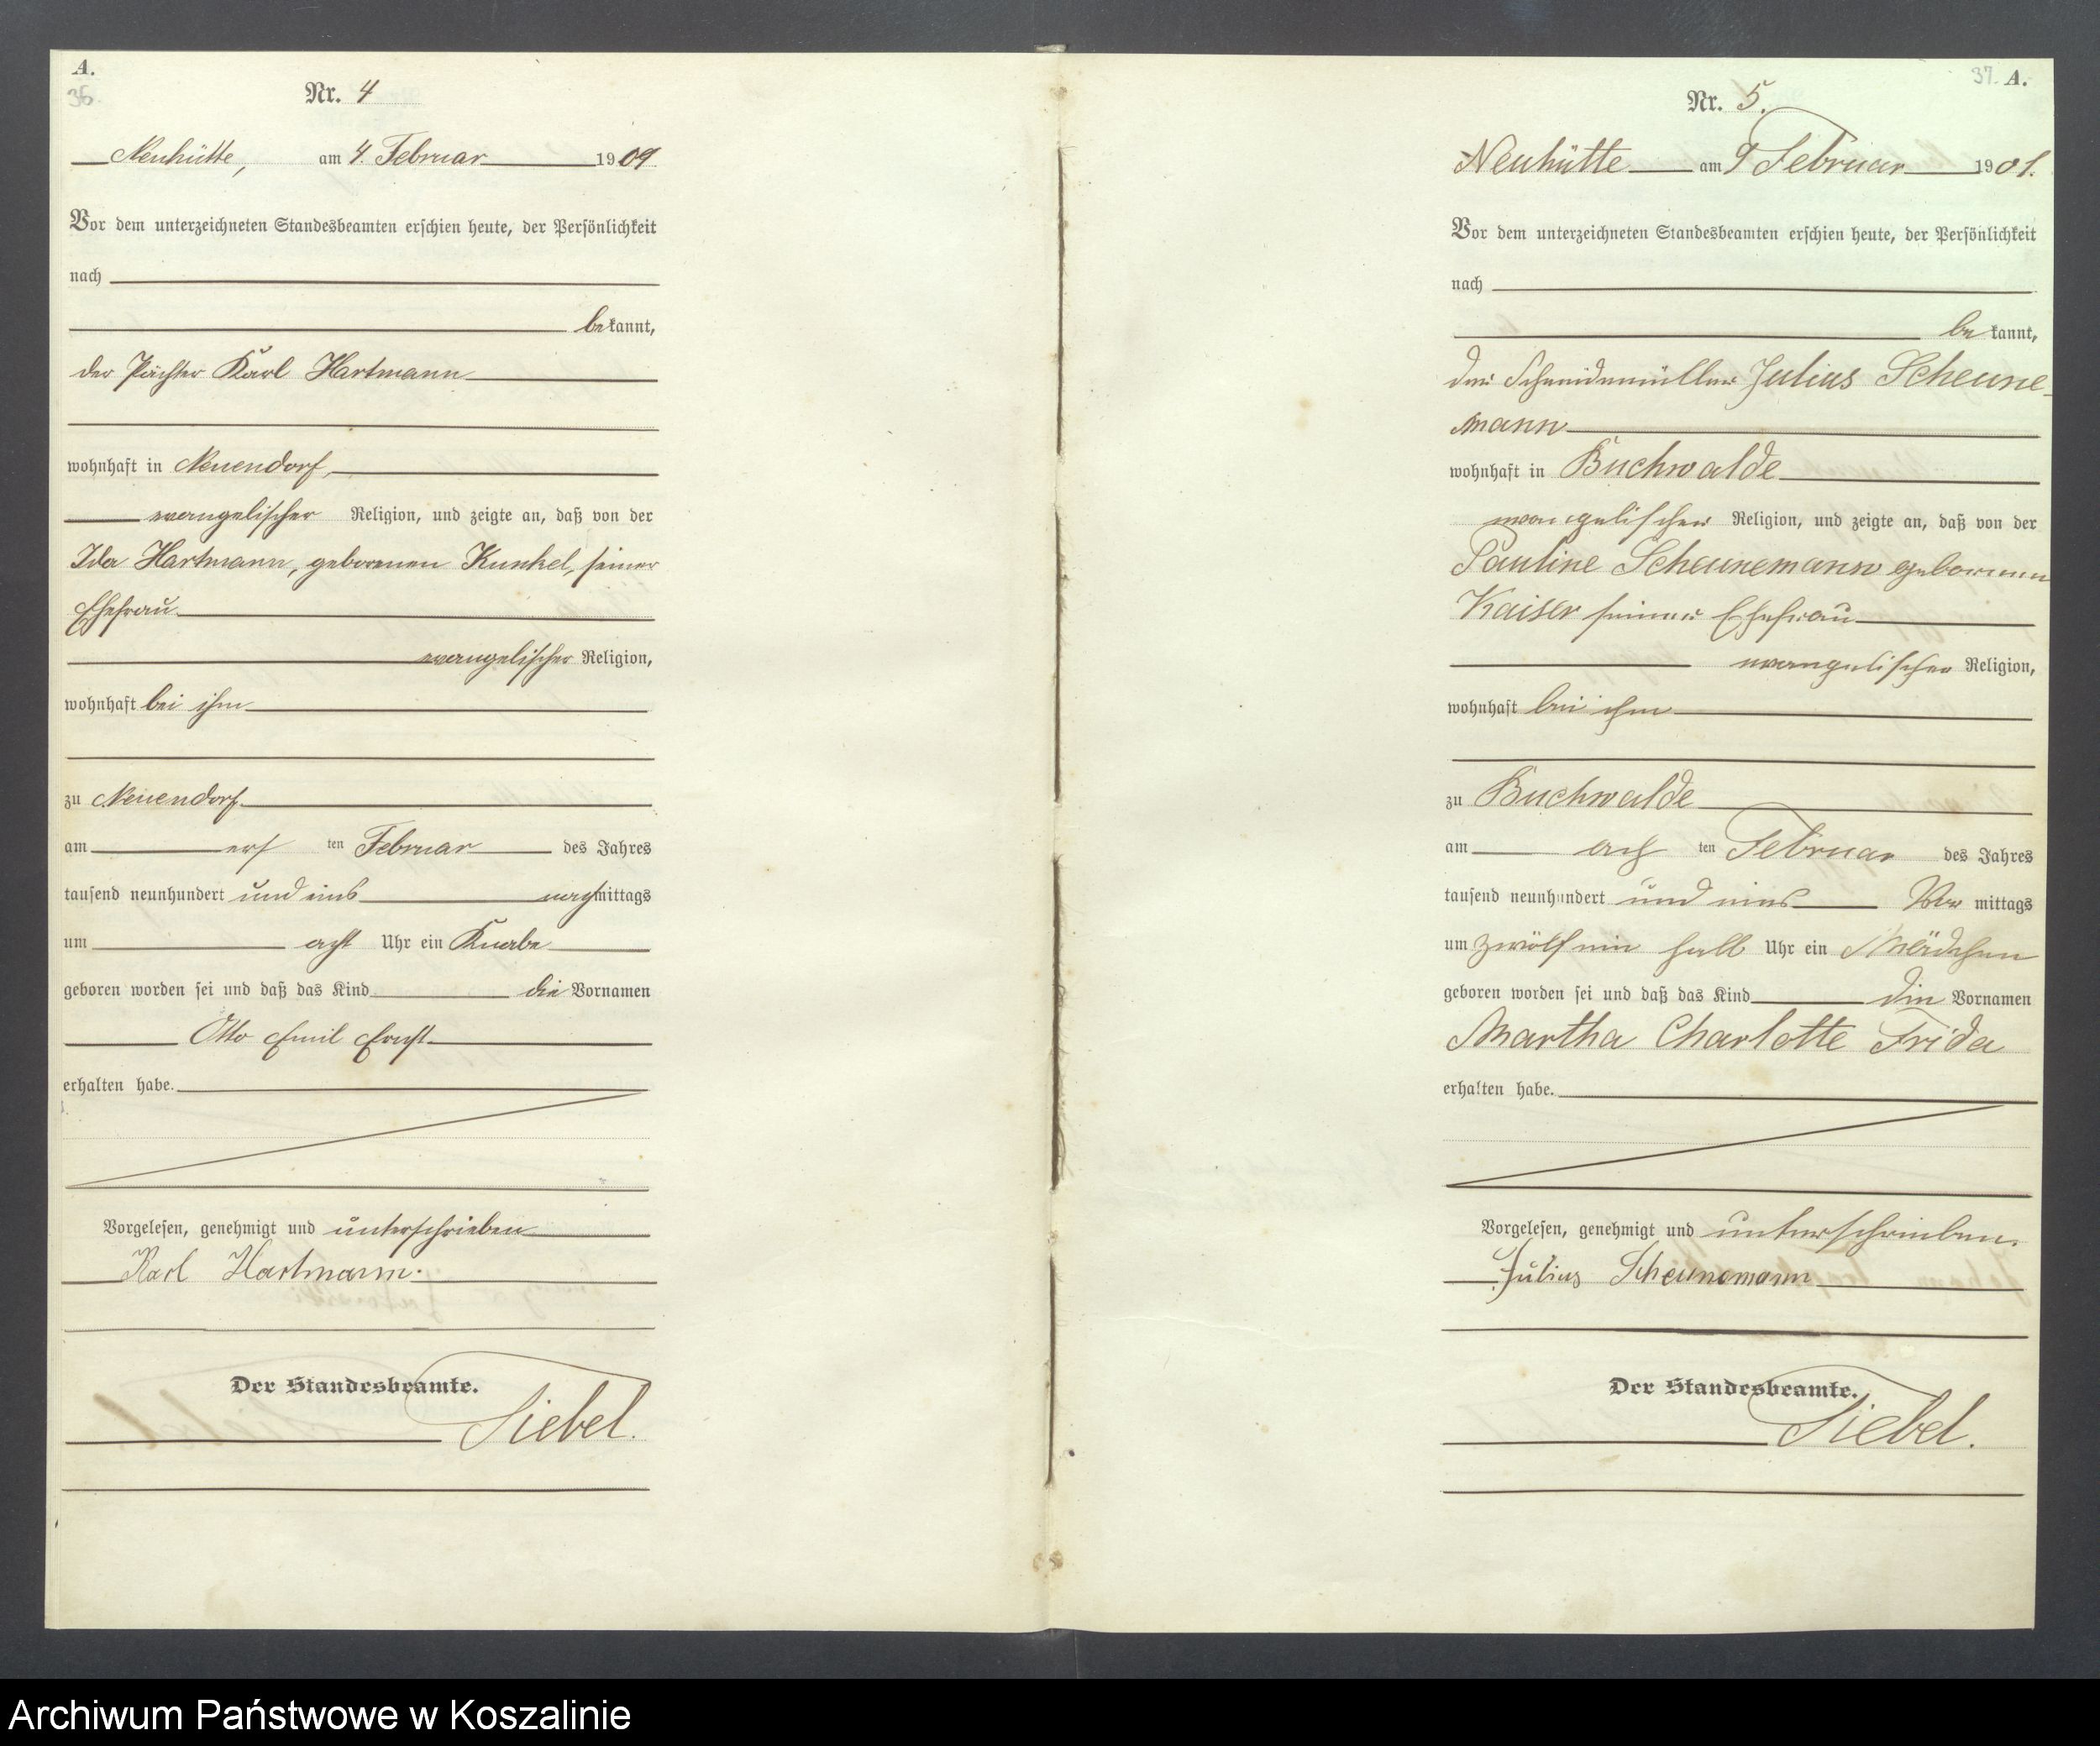 A.
36.
Nr. 4
Neuhütte, am 4. Februar 1909
Vor dem unterzeichneten Standesbeamten erschien heute, der Persönlichkeit
nach
bekannt,
der Pächter Karl Hartmann
wohnhaft in Neuendorf,
evangelischer Religion, und zeigte an, daß von der
Ida Hartmann, geborenen Kunkel, seiner
Ehefrau
evangelischer Religion,
wohnhaft bei ihm
zu Neuendorf
am ers ten Februar des Jahres
tausend neunhundert und eins nachmittags
um acht Uhr ein Knabe
geboren worden sei und daß das Kind die Vornamen
Otto Emil Ernst
erhalten habe.
Vorgelesen, genehmigt und unterschrieben
Karl Hartmann.
Der Standesbeamte.
Siebel.
37. A.
Nr. 5.
Neuhütte am 9 Februar 1901.
Vor dem unterzeichneten Standesbeamten erschien heute, der Persönlichkeit
nach
bekannt,
der Schneidemüller Julius Scheune-
mann
wohnhaft in Buchwalde
evangelischer Religion, und zeigte an, daß von der
Pauline Scheunemann geborenen
Kaiser seiner Ehefrau
evangelischer Religion,
wohnhaft bei ihm
zu Buchwalde
am ach ten Februar des Jahres
tausend neunhundert und eins Vor mittags
um zwölf ein halb Uhr ein Mädchen
geboren worden sei und daß das Kind die Vornamen
Martha Charlotte Frida
erhalten habe.
Vorgelesen, genehmigt und unterschrieben.
Julius Scheunemann
Der Standesbeamte.
Siebel.
Archiwum Państwowe w Koszalinie